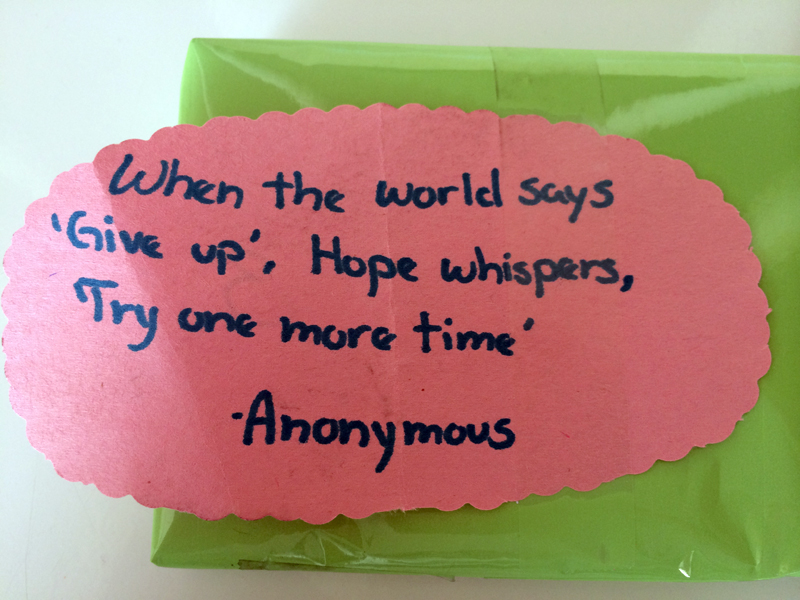 When the world says
'Give up', Hope whispers,
'Try one more time'
-Anonymous